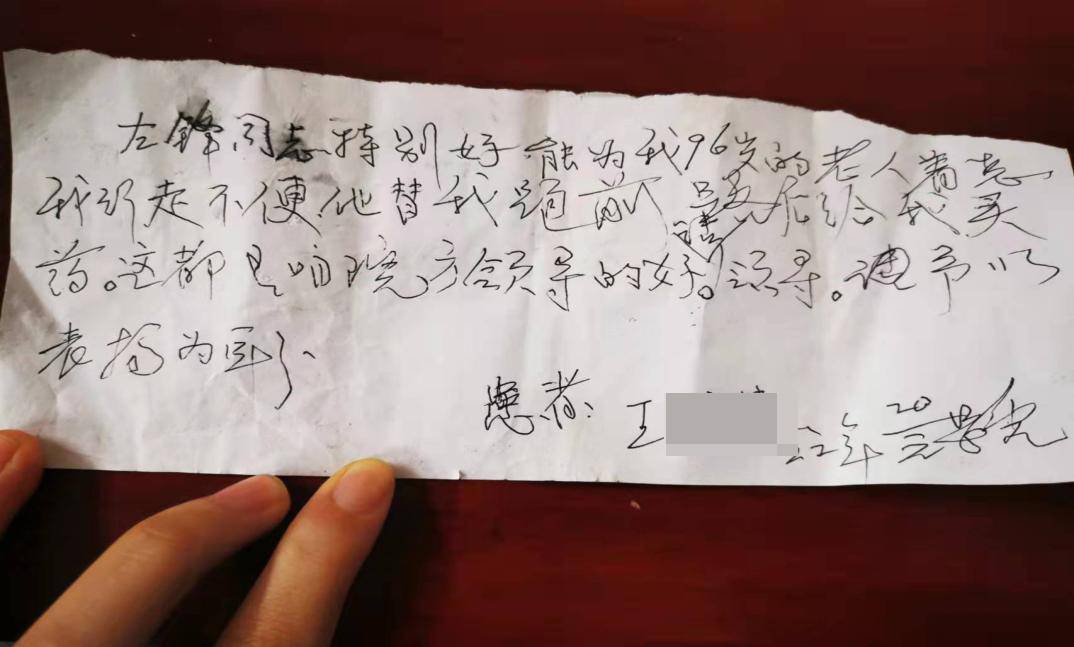 左锋同志特别好能为我96岁的老人着急
我行走不便.他替我跑前跑后给我买
药。这都是咱院方领导的好。领导。请予以
表扬为盼、
患者:王